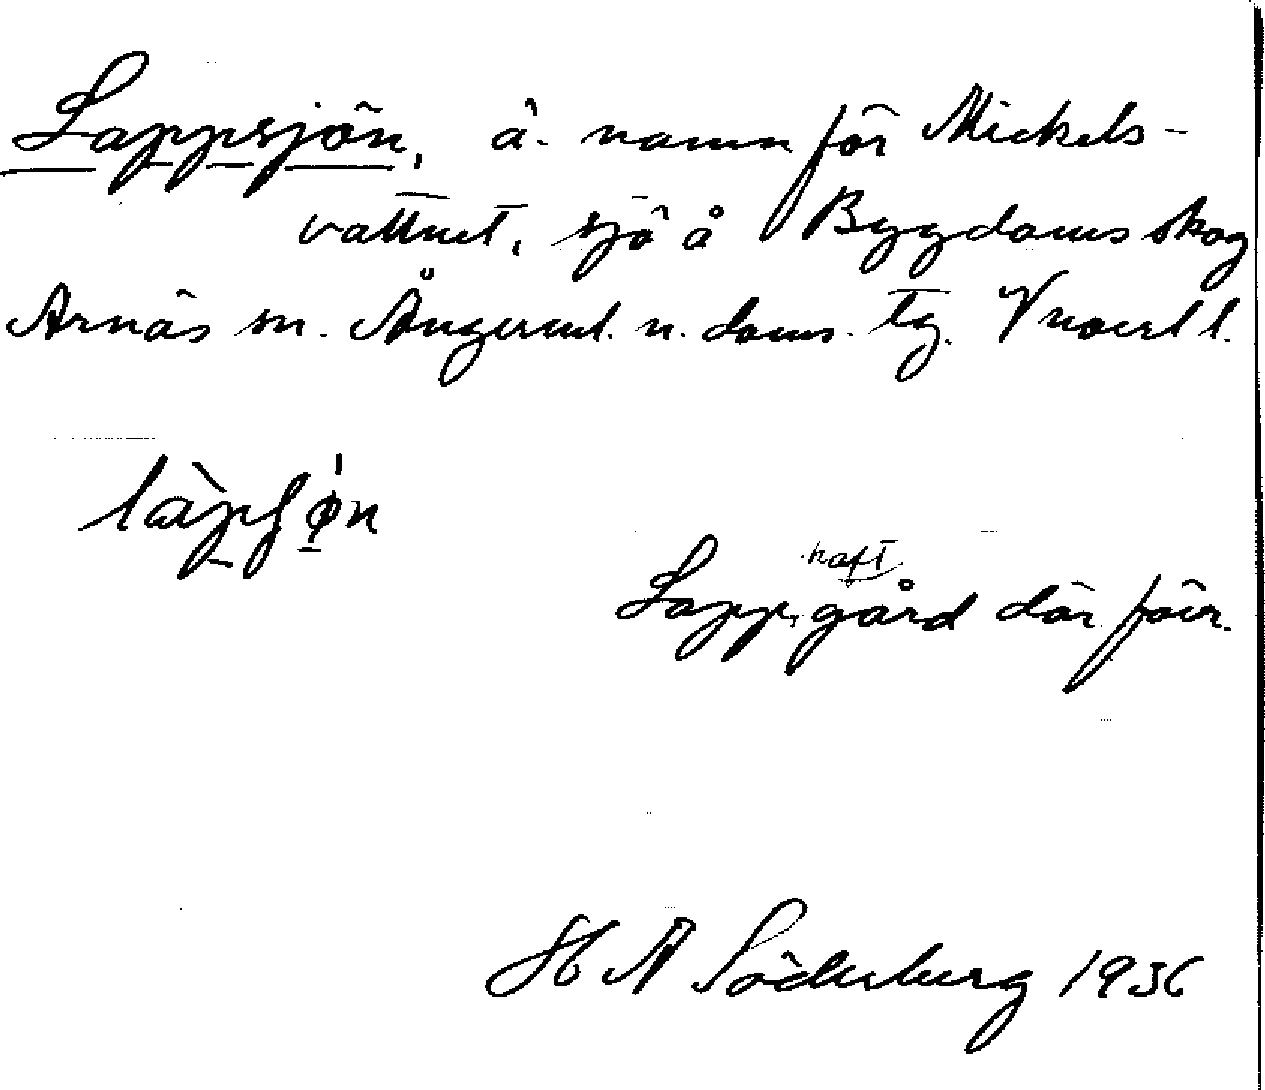 Lappsjön, ä. namn för Mickels-
vattnet, sjö å Bygdoms skog
Arnäs sn. Ångerml. n. doms. tg. Vnorrl l.
làpʃø̀n
haft
Lapp, gård där förr.
H A Söderberg 1936